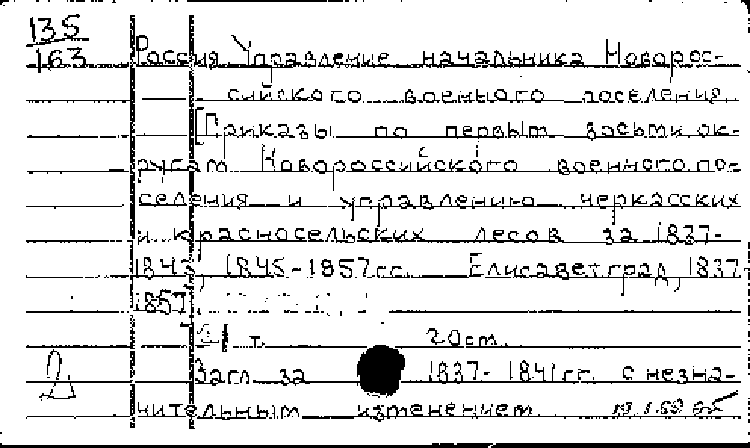 135
163
Россия Управление начальника Новорос-
сийского военного поселения.
[Приказы по первым восьми ок-
ругам Новороссийского военного по-
селения и управлению черкасских
и красносельских лесов за 1837-
1843, 1845-1857 гг. Елисаветград, 1837
1857
т. 20 см.
Загл. за 1837-1841 гг. с незна-
чительным изменением.